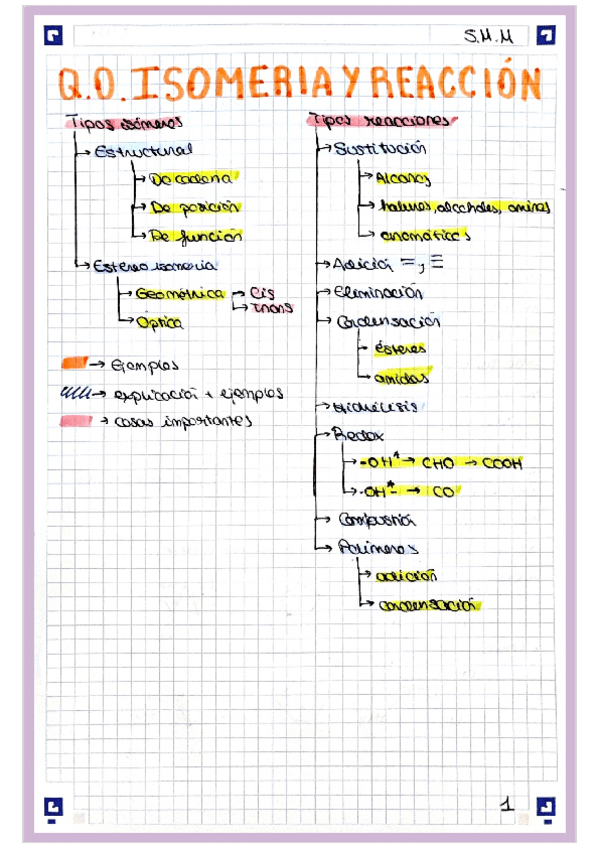 S.M.M
Q.O. ISOMERIA Y REACCIÓN
Tipos isómeros
Estructural
De cadena
De posición
De función
Estereoisomeria
Geométrica → Cis
→ Trans
Óptica
→ Ejemplos
→ explicación + ejemplos
→ cosas importantes
Tipos reacciones
Sustitución
Alcanos
halunos, alcoholes, aminas
aromáticos
Adición =, ≡
Eliminación
Condensación
ésteres
amidas
Hidrólisis
Redox
-OH* → CHO → COOH
-OH*- → CO
Combustión
Polímeros
adición
condensación
1